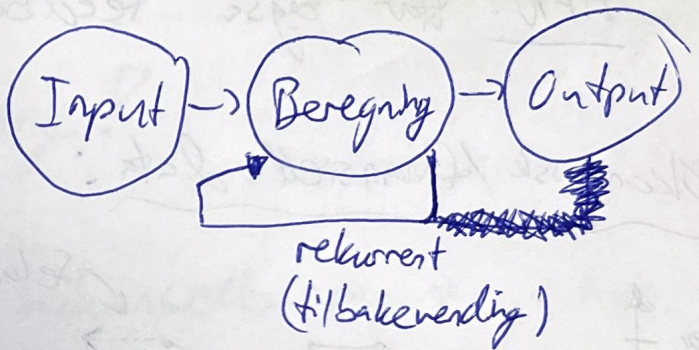 Input → Beregning → Output
rekurrent
(tilbakevending)